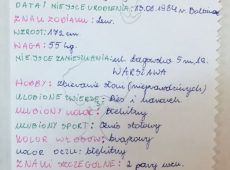 DATA I MIEJSCE URODZENIA: 13.08.1984 r.
ZNAK ZODIAKU: Lew.
WZROST: 172 cm
WAGA: 55 kg.
MIEJSCE ZAMIESZKANIA: ul. Łagowska 5 m. 18.
WARSZAWA
HOBBY: zbieranie słoni (nieprawdziwych)
ULUBIONE ZWIERZĘ: Pies i kanarek.
ULUBIONY KOLOR: błękitny
ULUBIONY SPORT: tenis stołowy
KOLOR WŁOSÓW: brązowy
KOLOR OCZU: błękitny
ZNAKI SZCZEGÓLNE: 2 pary